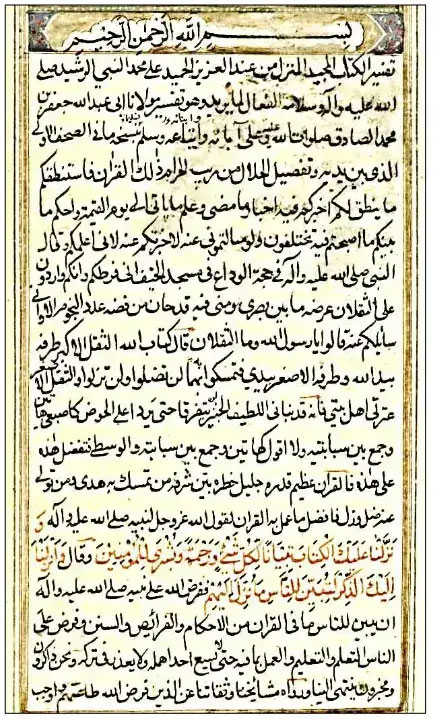 بسم الله الرحمن الرحيم
تفسير الكتاب المجيد المنزل من عند العزيز الحميد على محمد النبي الرشيد صلى
الله عليه وآله وسلامه الفعال لما يريد وهو تفسير مولانا ابى عبدالله جعفر بن
محمد الصادق صلوات الله عليه وعلى آبائه وسلم بنسخة ما في الصحف الاولى
الذى بين يديه وتفصيل الحلال من ريب الحرام ذلك القرآن فاستنطقوه
ما ينطق لكم اخبركم فيه اخبار ما مضى وعلم ما ياتى الى يوم القيمة وحكم ما
بينكم ما اصبحتم فيه تختلفون ولو سالتمونى عنه لاخبرتكم عنه لانى اعلمكم وقال
النبى صلى الله عليه وآله في حجة الوداع في مسجد الخيف انى فرطكم وانكم واردون
على الثقلان عرضه ما بين بصرى ومنى فيه قدحان من فضة عدد النجوم الا وانى
سائلكم عنه قالوا يا رسول الله وما الثقلان قال كتاب الله الثقل الاكبر طرفه
بيد الله وطرفه الاصغر بيدى فتمسكوا بهما لن تضلوا ولن تزلوا والثقل الاصغر
عترتى اهل بيتى فانه قد نبانى اللطيف الخبير لن يتفرقا حتى يردا على الحوض كاصبعى هاتين
وجمع بين سبابتيه ولا اقول كهاتين وجمع بين سبابته والوسطى فتفضل هذه
على هذه فالقرآن عظيم قدره جليل خطره بين شرفه من تمسك به هدى ومن تولى
عنه ضل وزل فافضل ما عمل به القرآن لقول الله عز وجل لنبيه صلى الله عليه وآله و
نزلنا عليك الكتاب تبيانا لكل شئ ورحمة وبشرى للمؤمنين وقال وانزلنا
اليك الذكر لتبين للناس ما نزل اليهم ففرض الله على نبيه صلى الله عليه وآله
ان يبين للناس ما في القرآن من الاحكام والفرائض والسنن وفرض على
الناس التعلم والتعليم والعمل بما فيه حتى لا يسع احدا جهله ولا يعذر في تركه ونحن ذاكرون
ومخبرون بما ينتهى الينا ورواه مشائخنا وثقاتنا عن الذين فرض الله طاعتهم واوجب